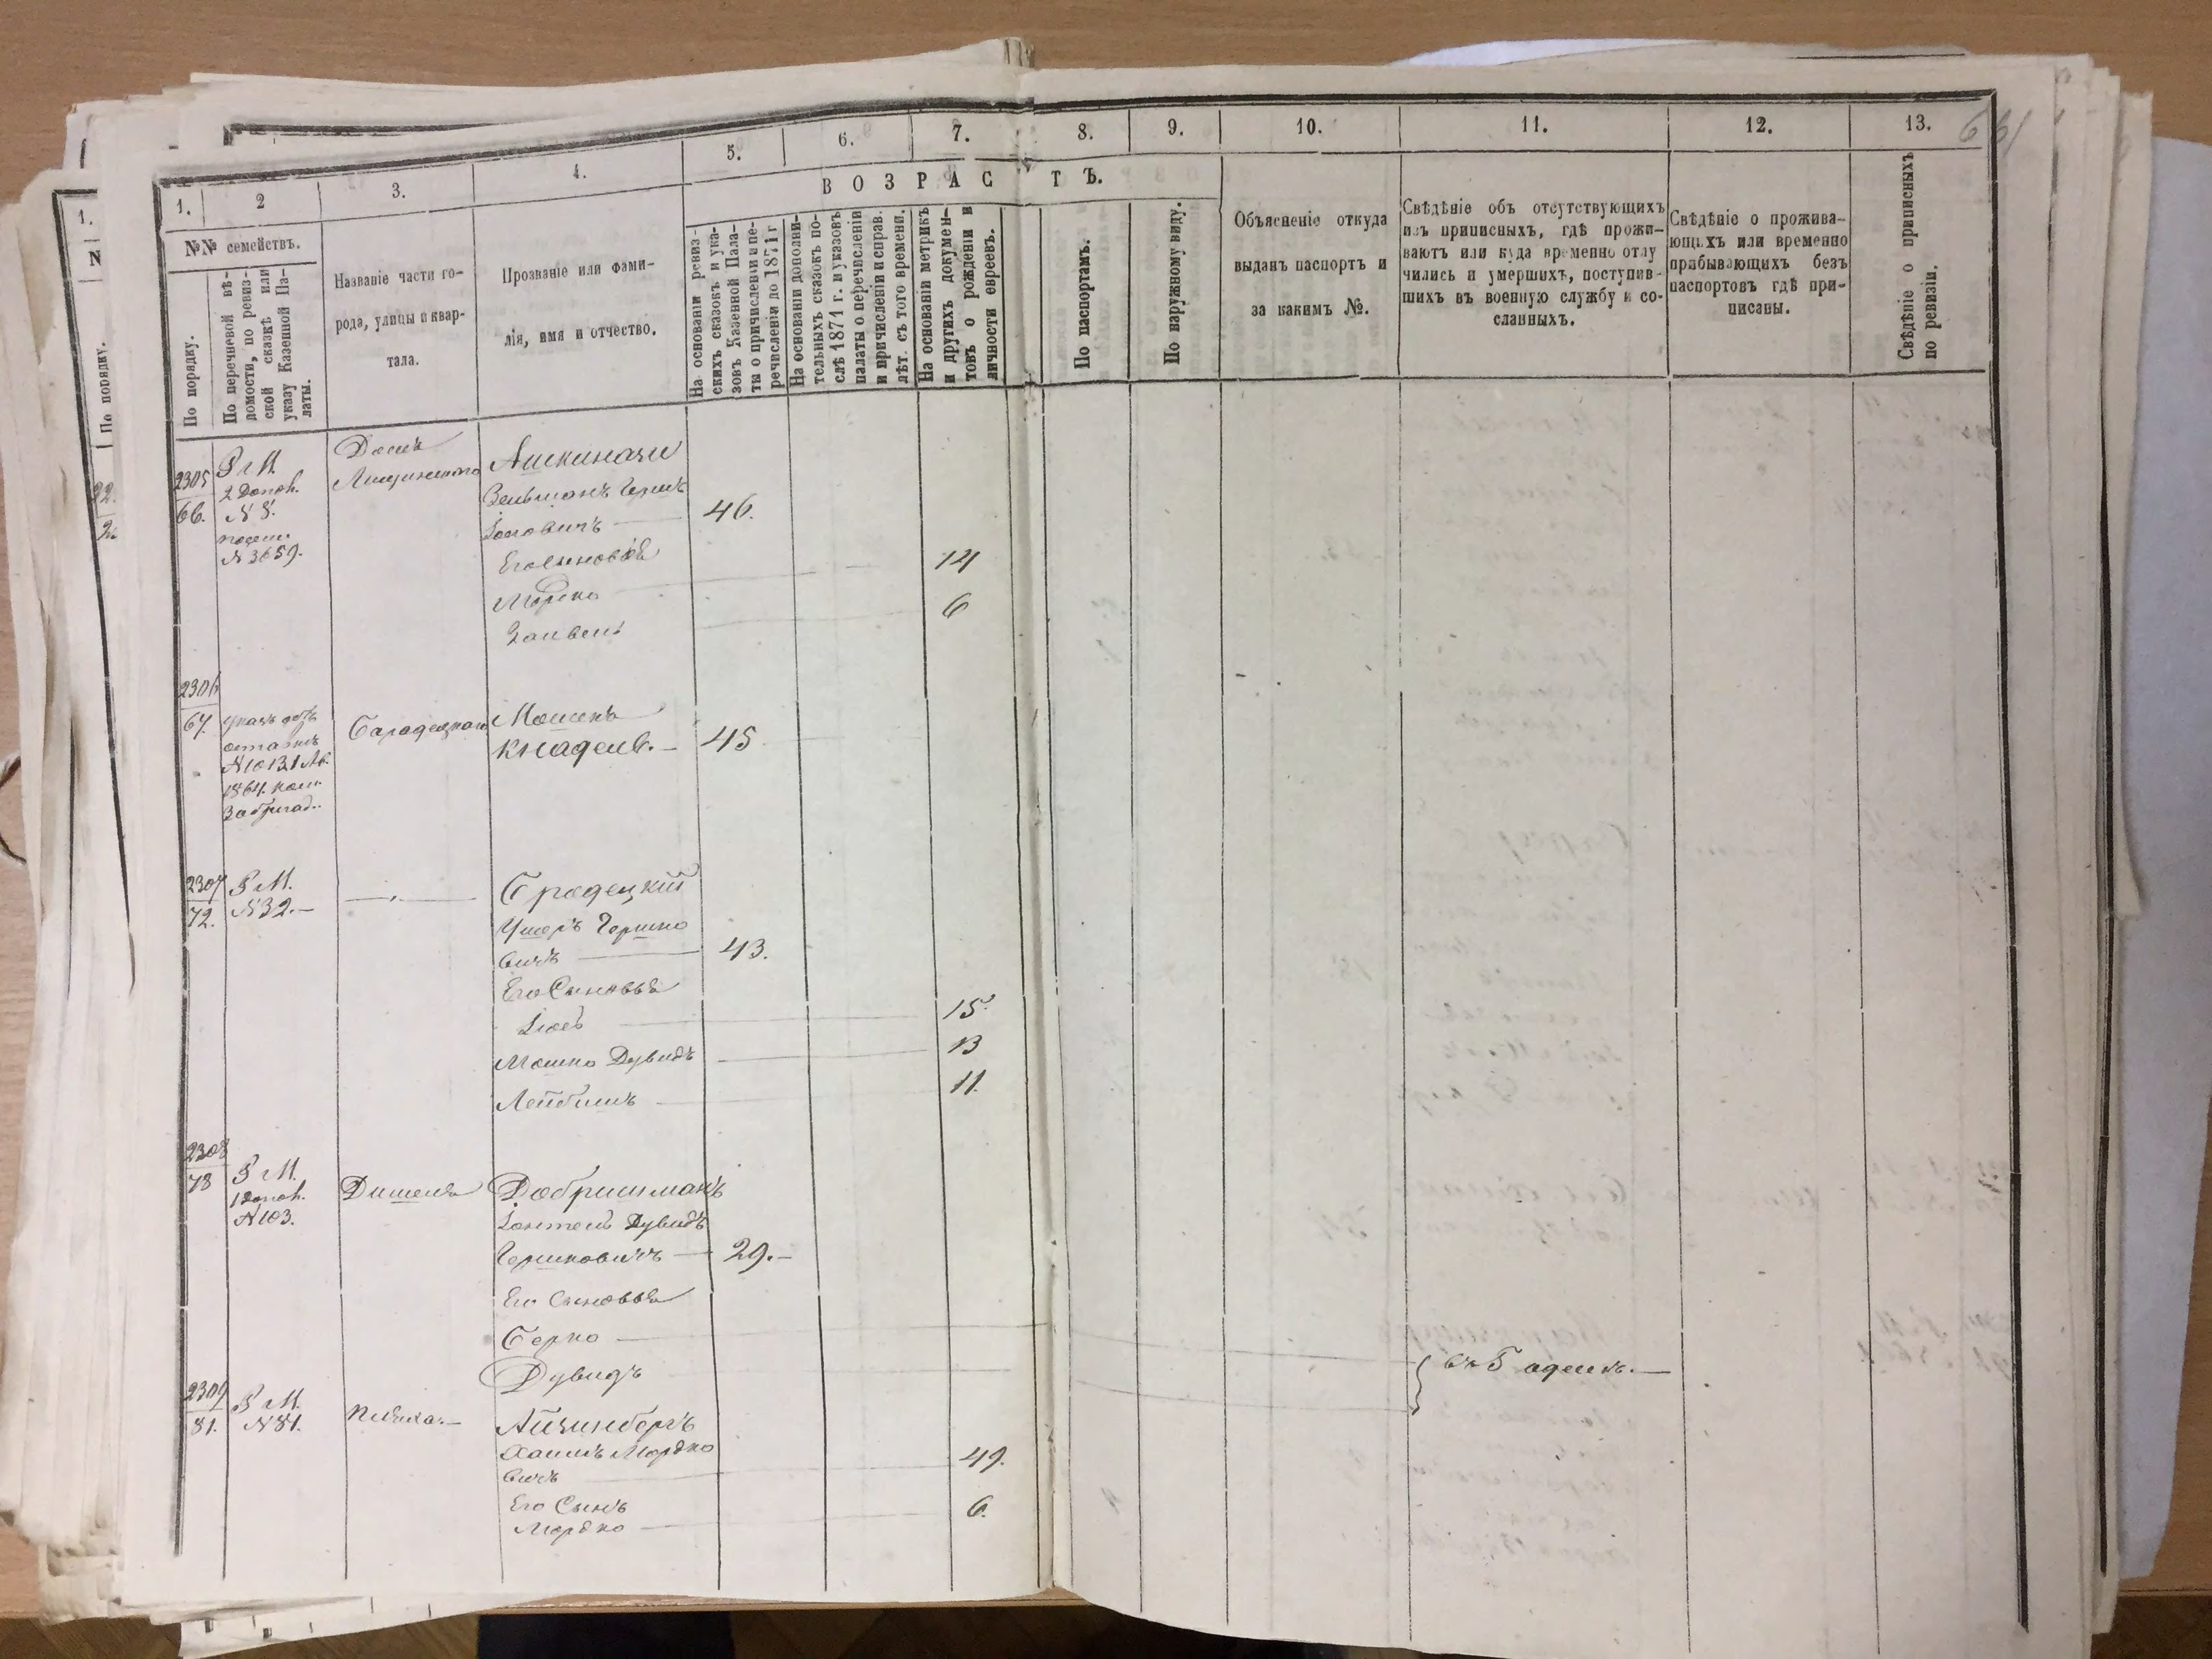 1.
2
3.
4.
5.
6.
7.
8.
9.
10.
11.
12.
13.
ВОЗРАСТЪ.
№№ семействъ.
По порядку.
По перечневой вѣ-
домости, по ревиз-
ской сказкѣ или
указу Казенной Па-
латы.
Названіе части го-
рода, улицы и квар-
тала.
Прозваніе или фами-
лія, имя и отчество.
На основаніи ревиз-
скихъ сказокъ и ука-
зовъ Казенной Пала-
ты о причисленіи и пе-
речисленіи до 1871 г
На основаніи дополни-
тельныхъ сказокъ по-
слѣ 1871 г. и указовъ
палаты о перечисленіи
и причисленіи и справ.
лѣт. съ того времени.
На основаніи метрикъ
и другихъ докумен-
товъ о рожденіи и
личности евреевъ.
По паспортамъ.
По наружному виду.
Объясненіе откуда
выданъ паспортъ и
за какимъ №.
Свѣдѣніе объ отсутствующихъ
изъ приписныхъ, гдѣ прожи-
ваютъ или куда временно отлу
чились и умершихъ, поступив-
шихъ въ военную службу и со-
сланныхъ.
Свѣдѣніе о прожива-
ющихъ или временно
прибывающихъ безъ
паспортовъ гдѣ при-
писаны.
Свѣдѣніе о приписныхъ
по ревизіи.
1.
N
По порядку.
2305
66.
Р М.
2 Допол.
N 8.
N 3659.
Домъ
Ашкинази
Зельманъ Герш
Іосовичъ 46.
Его сыновья
Мошко 14
Зайвель 6
2306
67.
N 1013
1864.
Барадецкаго
Мошенъ
Кнадель. 45
2307
72.
Р М.
N 32.
Бродецкій
Ушеръ Гершко
вичъ 43.
Его Сыновья
Іосъ 15.
Мошко Дувидъ 13
Лейбишъ 11.
2308
78
Р М.
1 Допол.
N 103.
Дишеля
Добришманъ
Дувидъ
Гершковичъ 29.
Его Сыновья
Берко
Дувидъ
2309
81.
Р М.
N 81.
Айзинбергъ
Хаимъ Мордко
вичъ 49.
Его Сынъ
Мордко 6.